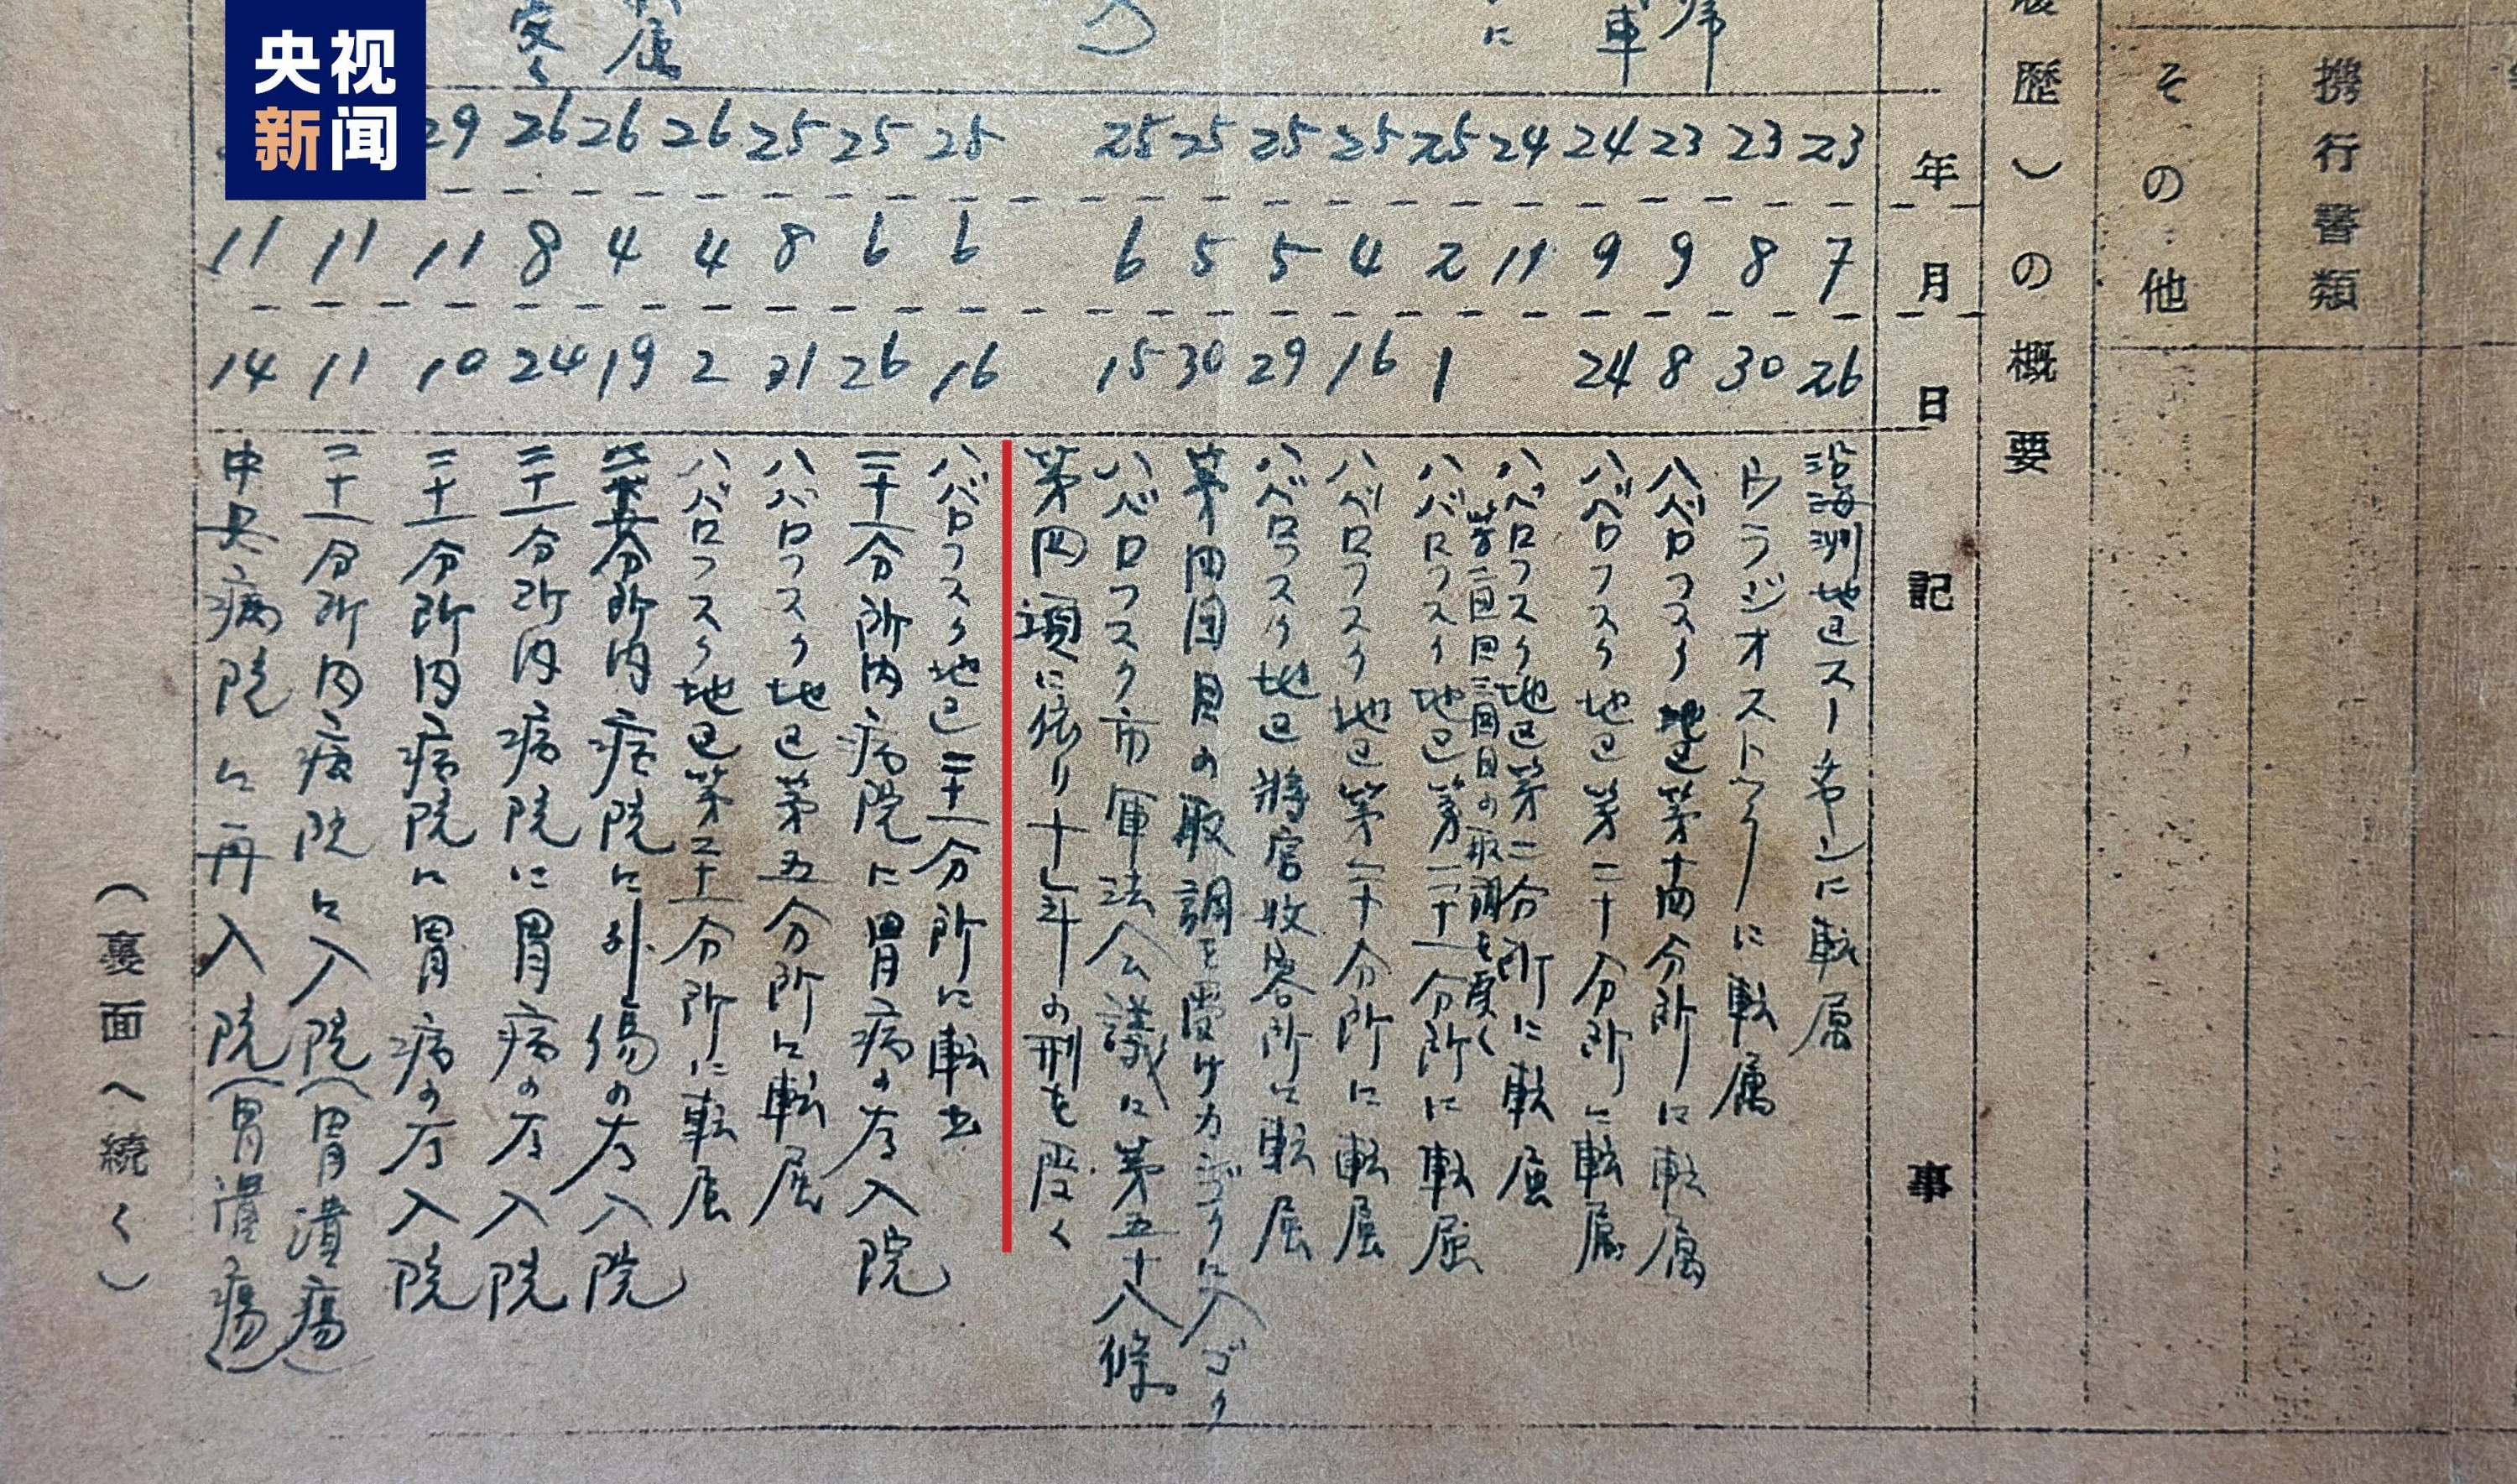 央视
新闻
携行書類
その他
歴)の概要
年 月 日 記事
23 7 26 沿海洲地区スーチャンに転属
23 8 30 ウラジオストックに転属
23 9 8 ハバロフスク地区第十四分所に転属
24 9 24 ハバロフスク地区第二十分所に転属
24 11 ハバロフスク地区第二分所に転属
第二回目三回目の取調を受く
25 2 1 ハバロフスク地区第二十一分所に転属
25 4 16 ハバロフスク地区第二十分所に転属
25 5 29 ハバロフスク地区将官収容所に転属
25 5 30 第四回目の取調を受けカゴクに入ゴク
25 6 15 ハバロフスク市軍法会議に第五十八條
第四項に依り十年の刑を受く
25 6 16 ハバロフスク地区二十一分所に転出
25 6 26 二十一分所内病院に胃病の為入院
25 8 31 ハバロフスク地区第五分所に転属
26 4 2 ハバロフスク地区第二十一分所に転属
26 4 19 分所内病院に外傷の為入院
26 8 24 二十一分所内病院に胃病の為入院
29 11 10 二十一分所内病院に胃病の為入院
11 11 二十一分所内病院に入院(胃潰瘍)
11 14 中央病院に再入院(胃潰瘍)
(裏面へ続く)